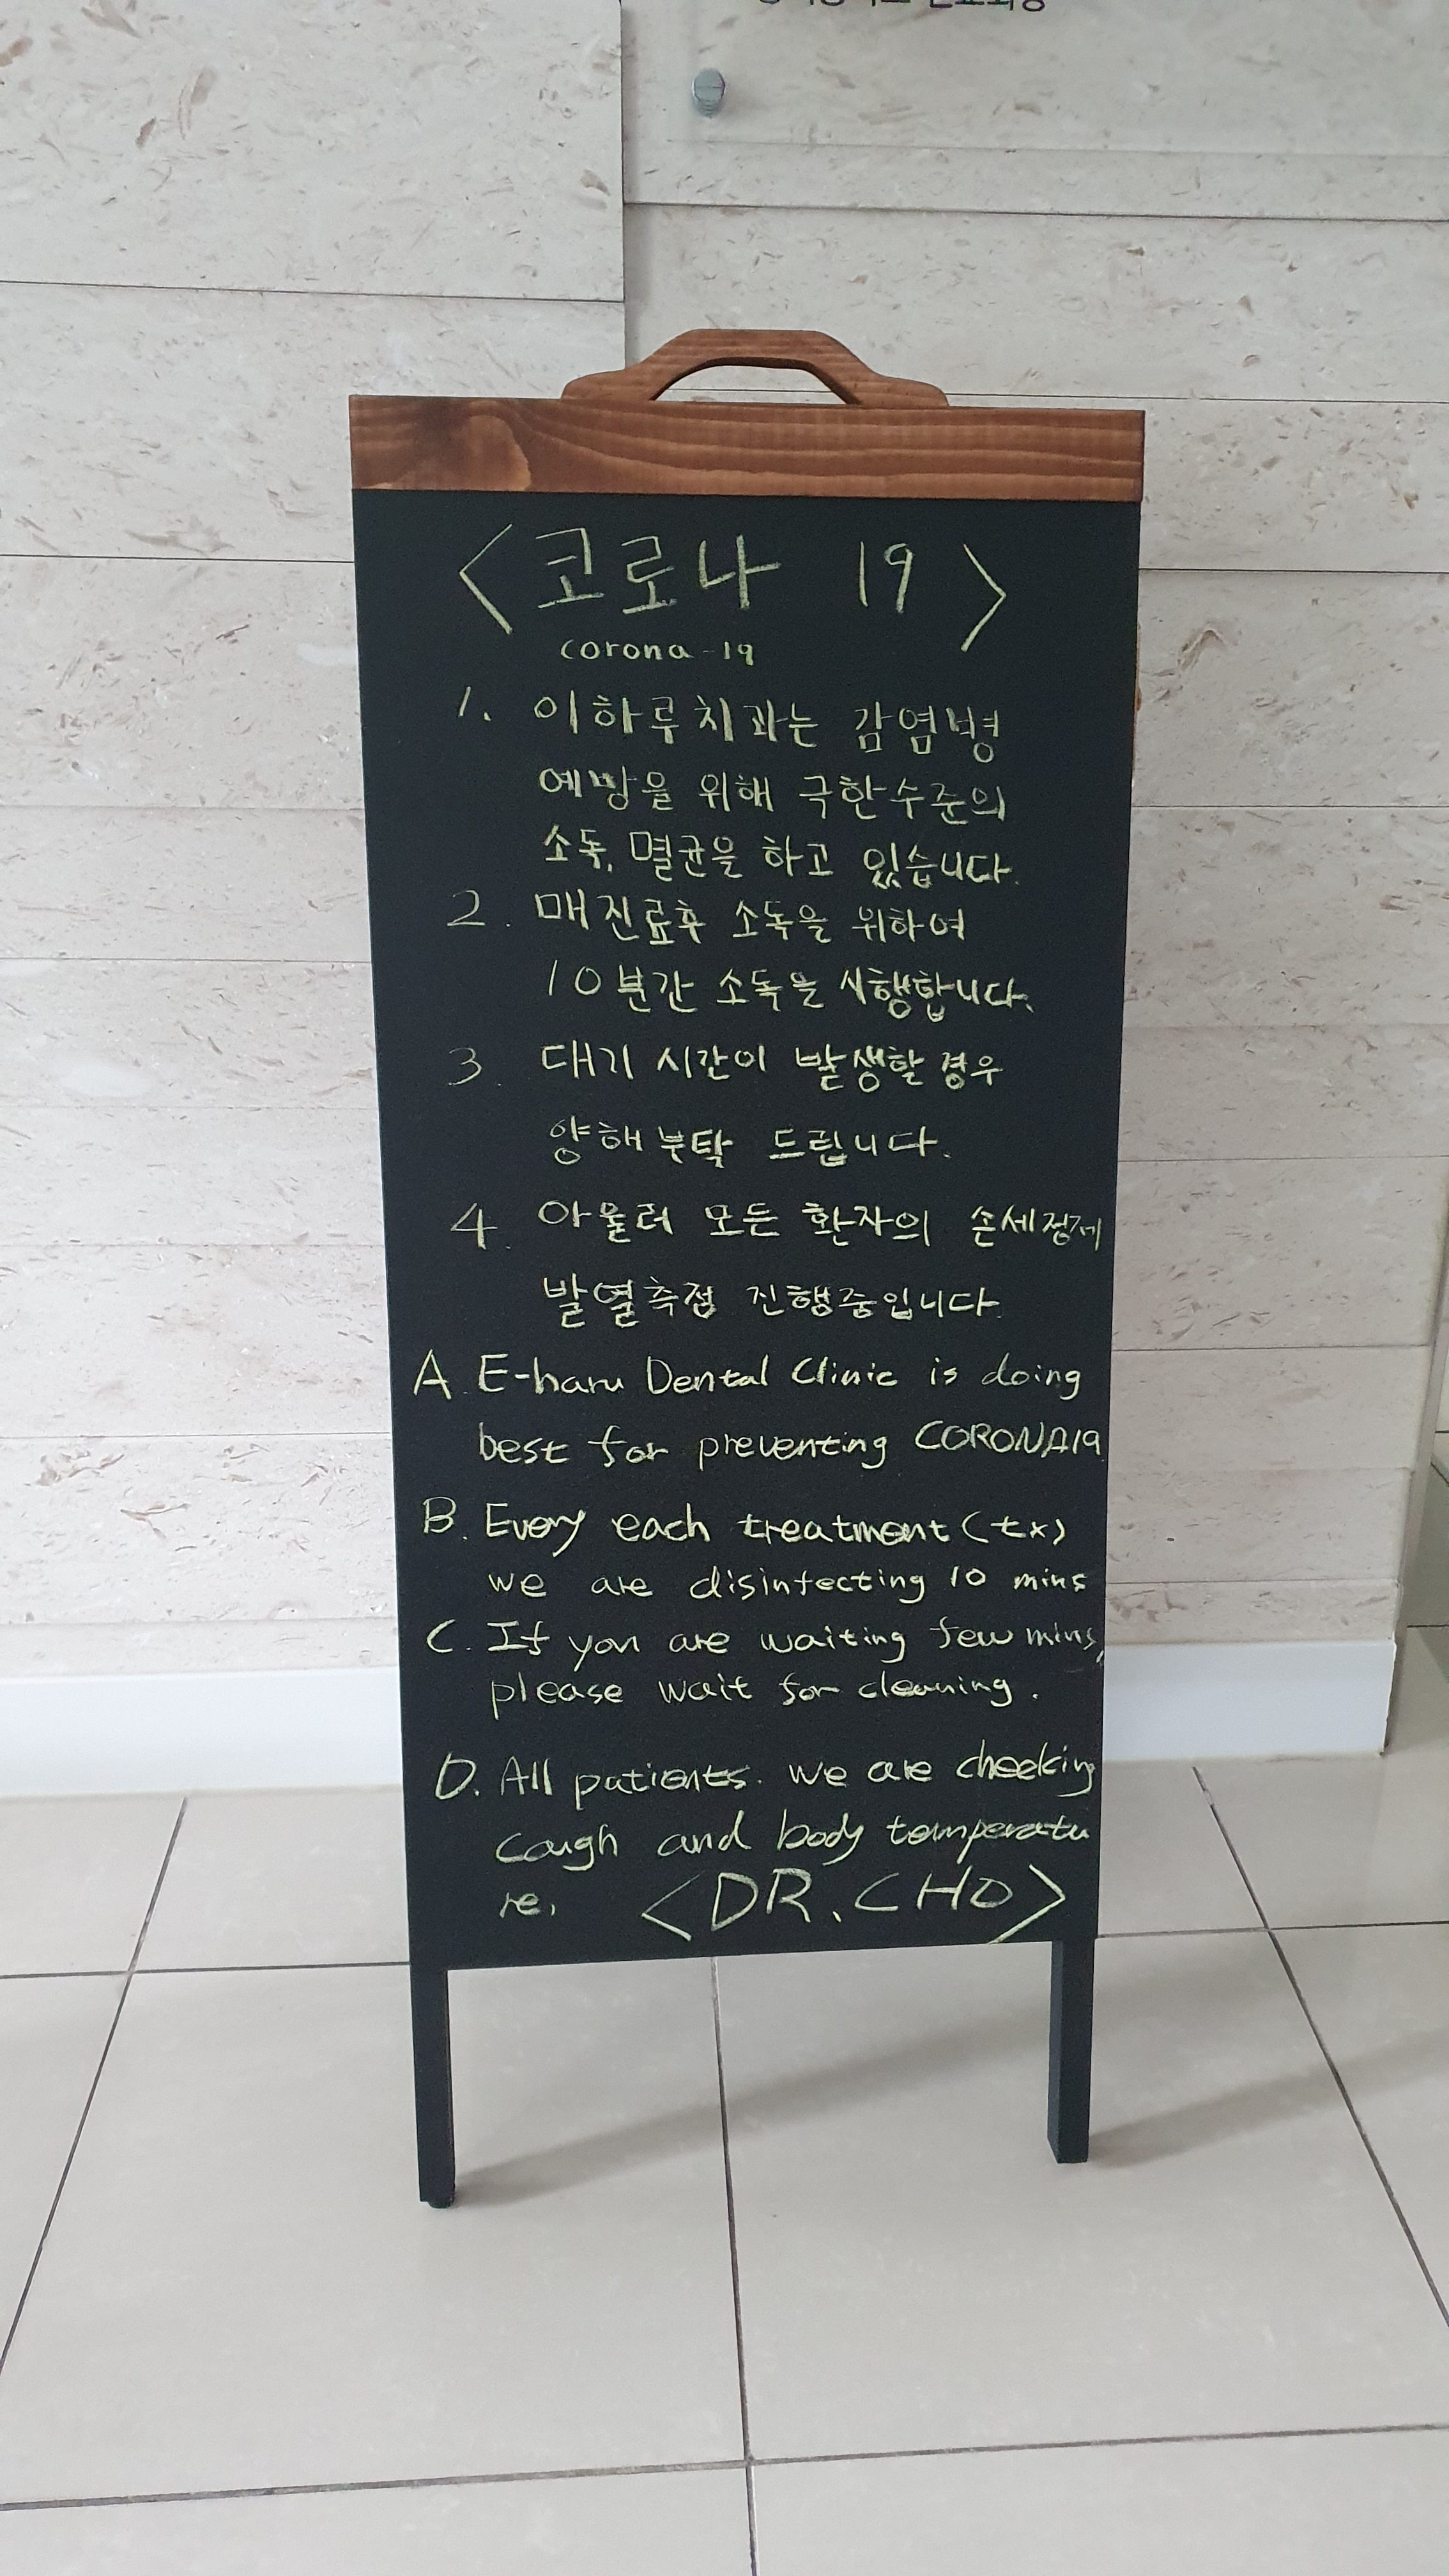 <코로나 19>
corona-19
1. 이하루치과는 감염병
예방을 위해 극한수준의
소독, 멸균을 하고 있습니다.
2. 매진료후 소독을 위하여
10분간 소독을 시행합니다.
3. 대기 시간이 발생할 경우
양해부탁 드립니다.
4. 아울러 모든 환자의 손세정제
발열측정 진행중입니다.
A. E-haru Dental Clinic is doing
best for preventing CORONA19
B. Every each treatment (tx)
we are disinfecting 10 mins
C. If you are waiting few mins,
please wait for cleaning.
D. All patients. we are checking
cough and body temperatu
re. <DR. CHO>